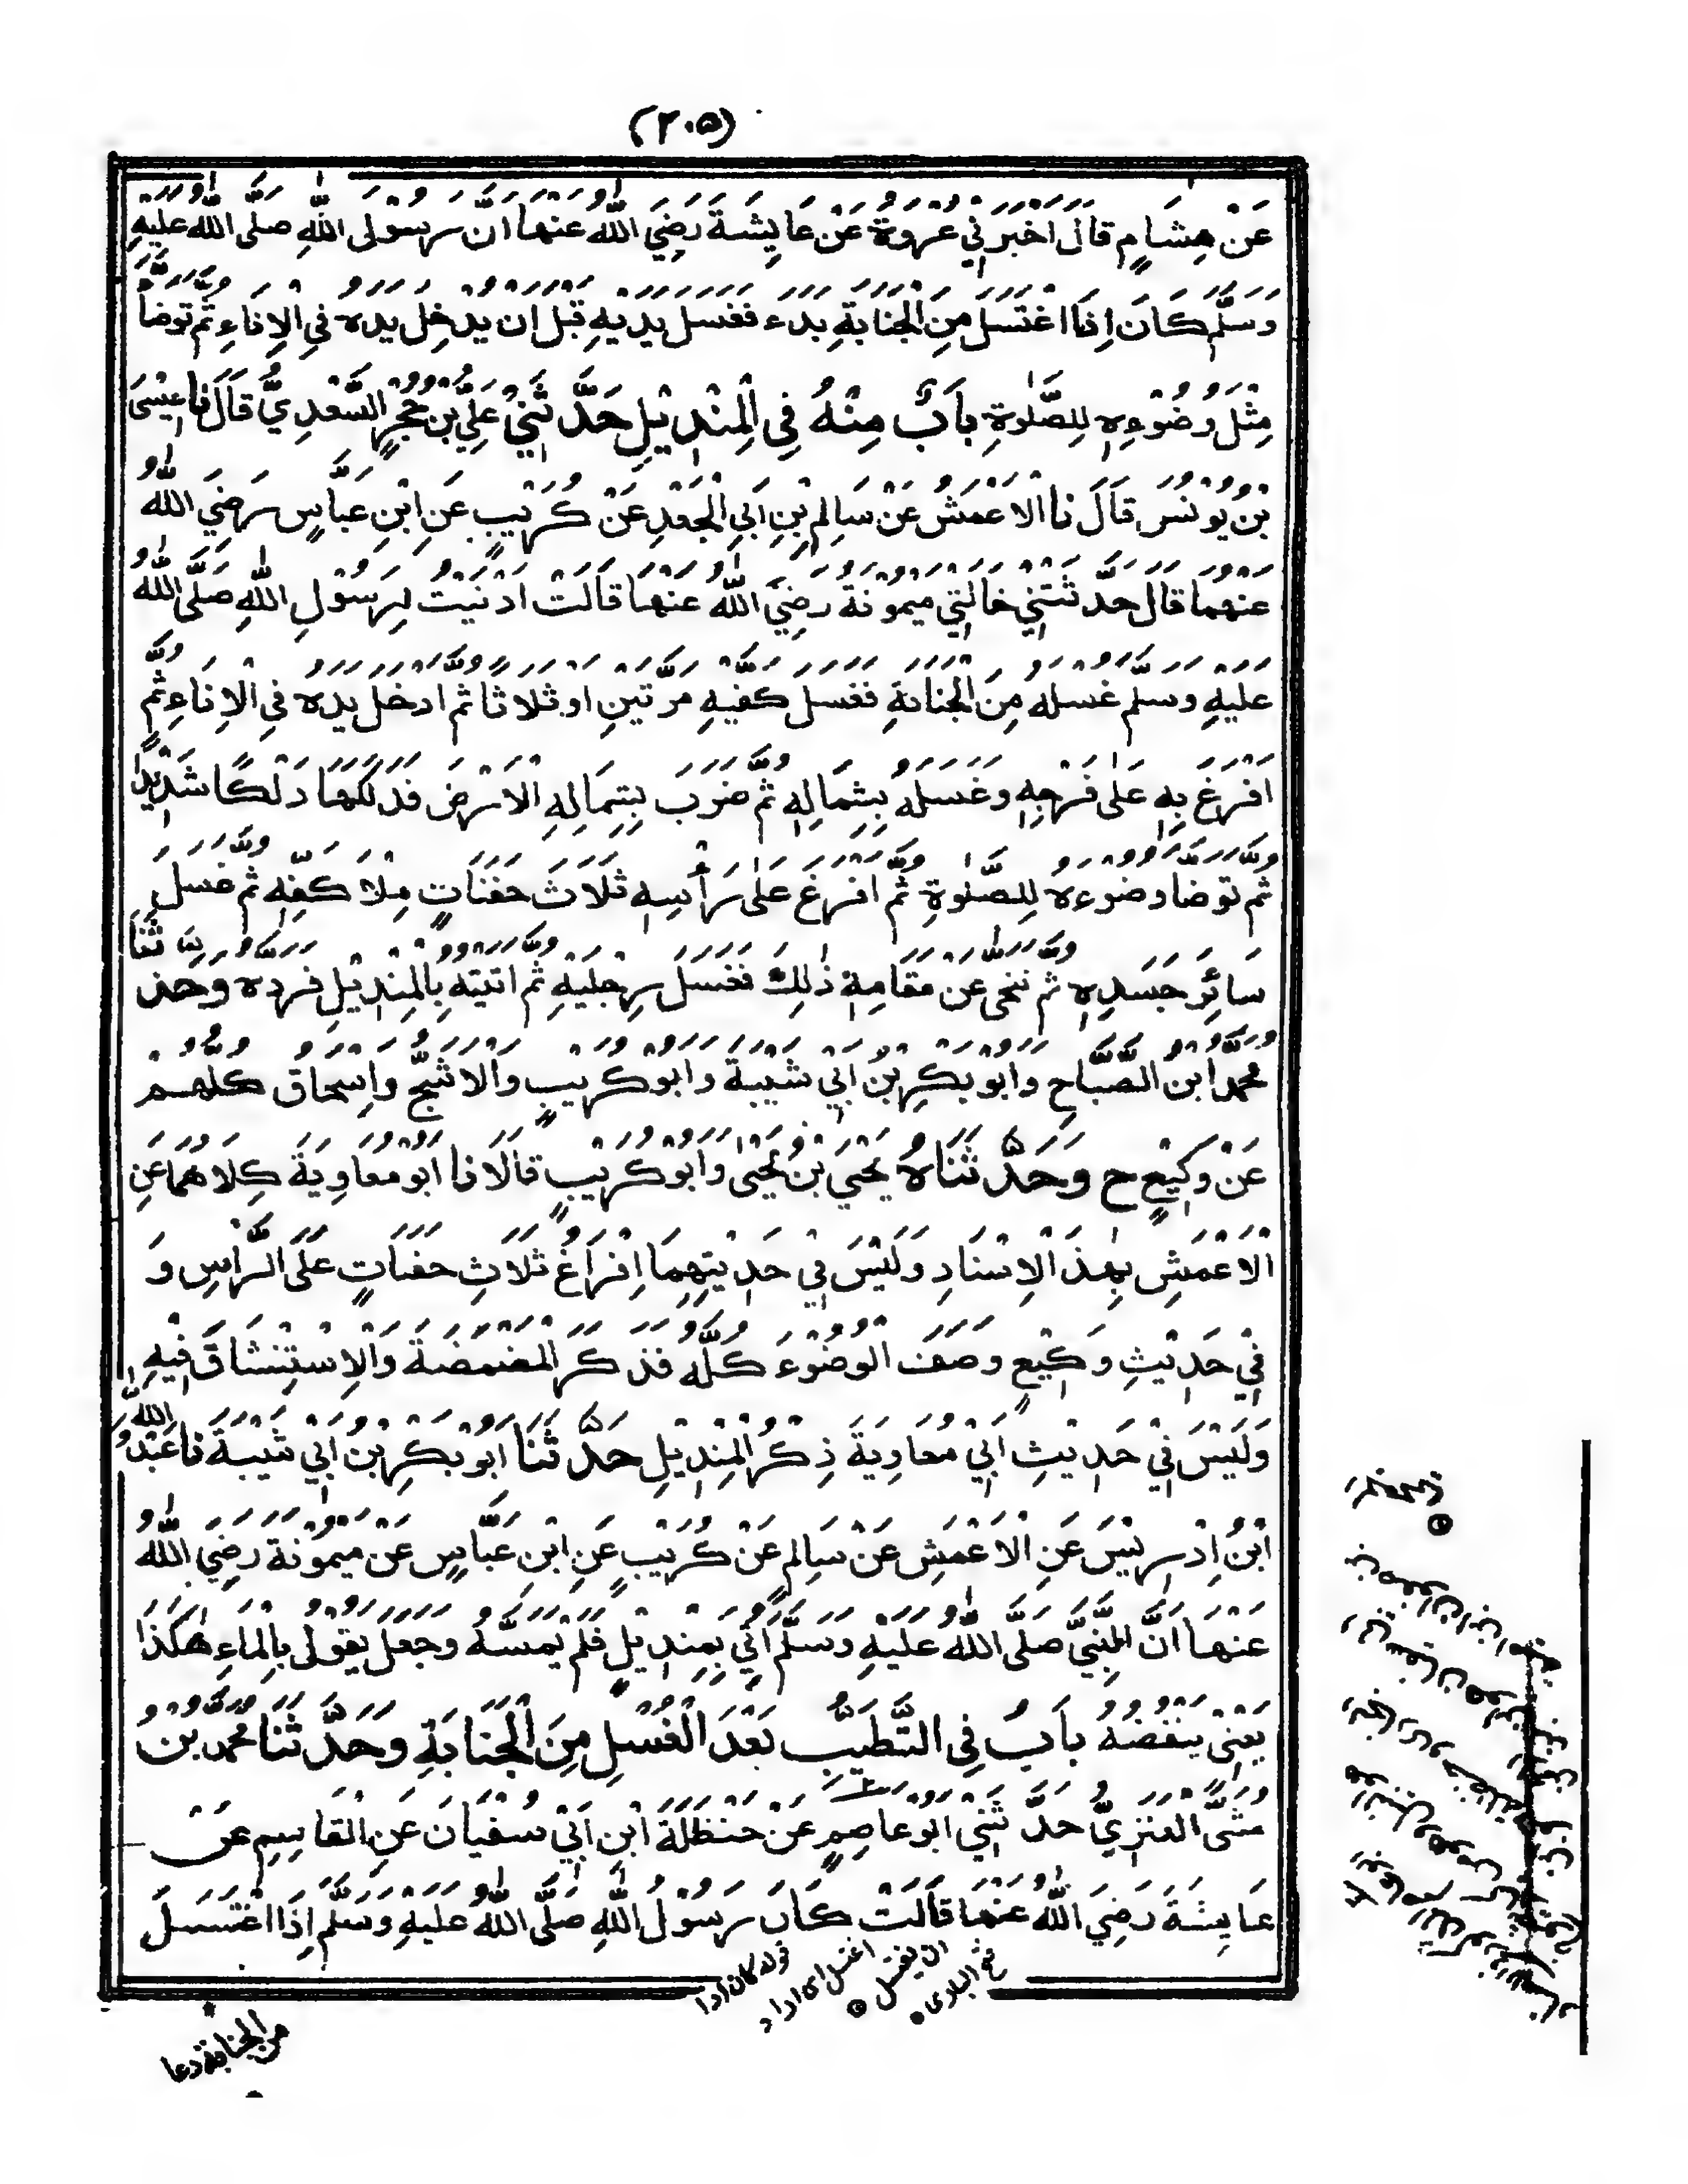 (٢٠٥)
عَنْ هِشَامٍ قَالَ اَخْبَرَنِيْ عُرْوَةُ عَنْ عَايِشَةَ رَضِيَ اللّٰهُ عَنْهَا اَنَّ رَسُوْلَ اللّٰهِ صَلَّى اللّٰهُ عَلَيْهِ
وَسَلَّمَ كَانَ اِذَا اغْتَسَلَ مِنَ الْجَنَابَةِ بَدَءَ فَغَسَلَ يَدَيْهِ قَبْلَ اَنْ يُدْخِلَ يَدَهُ فِي الْاِنَاءِ ثُمَّ تَوَضَّأَ
مِثْلَ وُضُوْءِهٖ لِلصَّلٰوةِ بَابٌ مِنْهُ فِى الْمِنْدِيْلِ حَدَّثَنِيْ عَلِيُّ بْنُ حُجْرٍ السَّعْدِيُّ قَالَ نَا عِيْسَى
بْنُ يُوْنُسَ قَالَ نَا الْاَعْمَشُ عَنْ سَالِمِ بْنِ اَبِي الْجَعْدِ عَنْ كُرَيْبٍ عَنِ ابْنِ عَبَّاسٍ رَضِيَ اللّٰهُ
عَنْهُمَا قَالَ حَدَّثَتْنِيْ خَالَتِيْ مَيْمُوْنَةُ رَضِيَ اللّٰهُ عَنْهَا قَالَتْ اَدْنَيْتُ لِرَسُوْلِ اللّٰهِ صَلَّى اللّٰهُ
عَلَيْهِ وَسَلَّمَ غُسْلَهُ مِنَ الْجَنَابَةِ فَغَسَلَ كَفَّيْهِ مَرَّتَيْنِ اَوْ ثَلَاثًا ثُمَّ اَدْخَلَ يَدَهُ فِي الْاِنَاءِ ثُمَّ
اَفْرَغَ بِهٖ عَلٰى فَرْجِهٖ وَغَسَلَهُ بِشِمَالِهٖ ثُمَّ ضَرَبَ بِشِمَالِهِ الْاَرْضَ فَدَلَكَهَا دَلْكًا شَدِيْدًا
ثُمَّ تَوَضَّأَ وُضُوْءَهُ لِلصَّلٰوةِ ثُمَّ اَفْرَغَ عَلٰى رَأْسِهٖ ثَلَاثَ حَفَنَاتٍ مِلَاَ كَفِّهٖ ثُمَّ غَسَلَ
سَائِرَ جَسَدِهٖ ثُمَّ تَنَحّٰى عَنْ مَقَامِهٖ ذٰلِكَ فَغَسَلَ رِجْلَيْهِ ثُمَّ اَتَيْتُهُ بِالْمِنْدِيْلِ فَرَدَّهُ وَحَدَّثَنَا
مُحَمَّدُ ابْنُ الصَّبَّاحِ وَاَبُوْ بَكْرِ بْنُ اَبِيْ شَيْبَةَ وَاَبُوْ كُرَيْبٍ وَالْاَشَجُّ وَاِسْحَاقُ كُلُّهُمْ
عَنْ وَكِيْعٍ ح وَحَدَّثَنَاهُ يَحْيَى بْنُ يَحْيٰى وَاَبُوْ كُرَيْبٍ قَالَا نَا اَبُوْ مُعَاوِيَةَ كِلَاهُمَا عَنِ
الْاَعْمَشِ بِهٰذَا الْاِسْنَادِ وَلَيْسَ فِيْ حَدِيْثِهِمَا اِفْرَاغُ ثَلَاثِ حَفَنَاتٍ عَلَى الرَّاْسِ وَ
فِيْ حَدِيْثِ وَكِيْعٍ وَصَفَ الْوُضُوْءَ كُلَّهُ فَذَكَرَ الْمَضْمَضَةَ وَالْاِسْتِنْشَاقَ فِيْهِ
وَلَيْسَ فِيْ حَدِيْثِ اَبِيْ مُعَاوِيَةَ ذِكْرُ الْمِنْدِيْلِ حَدَّثَنَا اَبُوْ بَكْرِ بْنُ اَبِيْ شَيْبَةَ نَا عَبْدُ اللّٰهِ
ابْنُ اِدْرِيْسَ عَنِ الْاَعْمَشِ عَنْ سَالِمٍ عَنْ كُرَيْبٍ عَنِ ابْنِ عَبَّاسٍ عَنْ مَيْمُوْنَةَ رَضِيَ اللّٰهُ
عَنْهَا اَنَّ النَّبِيَّ صَلَّى اللّٰهُ عَلَيْهِ وَسَلَّمَ اُتِيَ بِمِنْدِيْلٍ فَلَمْ يَمَسَّهُ وَجَعَلَ يَقُوْلُ بِالْمَاءِ هٰكَذَا
يَعْنِيْ يَنْفُضُهُ بَابٌ فِى التَّطَيُّبِ بَعْدَ الْغُسْلِ مِنَ الْجَنَابَةِ وَحَدَّثَنَا مُحَمَّدُ بْنُ
مُثَنَّى الْعَنَزِيُّ حَدَّثَنِيْ اَبُوْ عَاصِمٍ عَنْ حَنْظَلَةَ ابْنِ اَبِيْ سُفْيَانَ عَنِ الْقَاسِمِ عَنْ
عَايِشَةَ رَضِيَ اللّٰهُ عَنْهَا قَالَتْ كَانَ رَسُوْلُ اللّٰهِ صَلَّى اللّٰهُ عَلَيْهِ وَسَلَّمَ اِذَا اغْتَسَلَ
قوله كان اذا
اغتسل اى اراد
ان يغتسل
فتح البارى
من الجنابة دعا